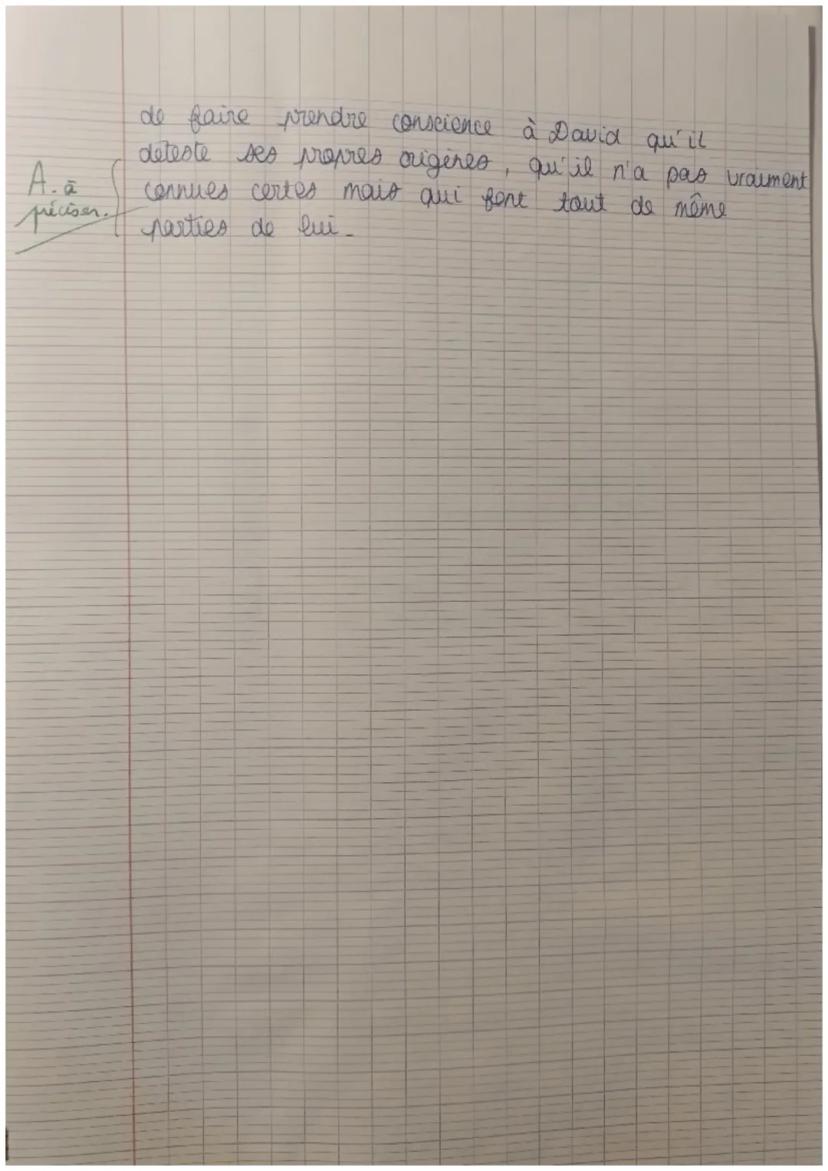 de faire prendre conscience à David qu'il
déteste ses propres origines, qu'il n'a pas vraiment
A. à
connues certes mais qui font tout de même
préciser.
parties de lui.